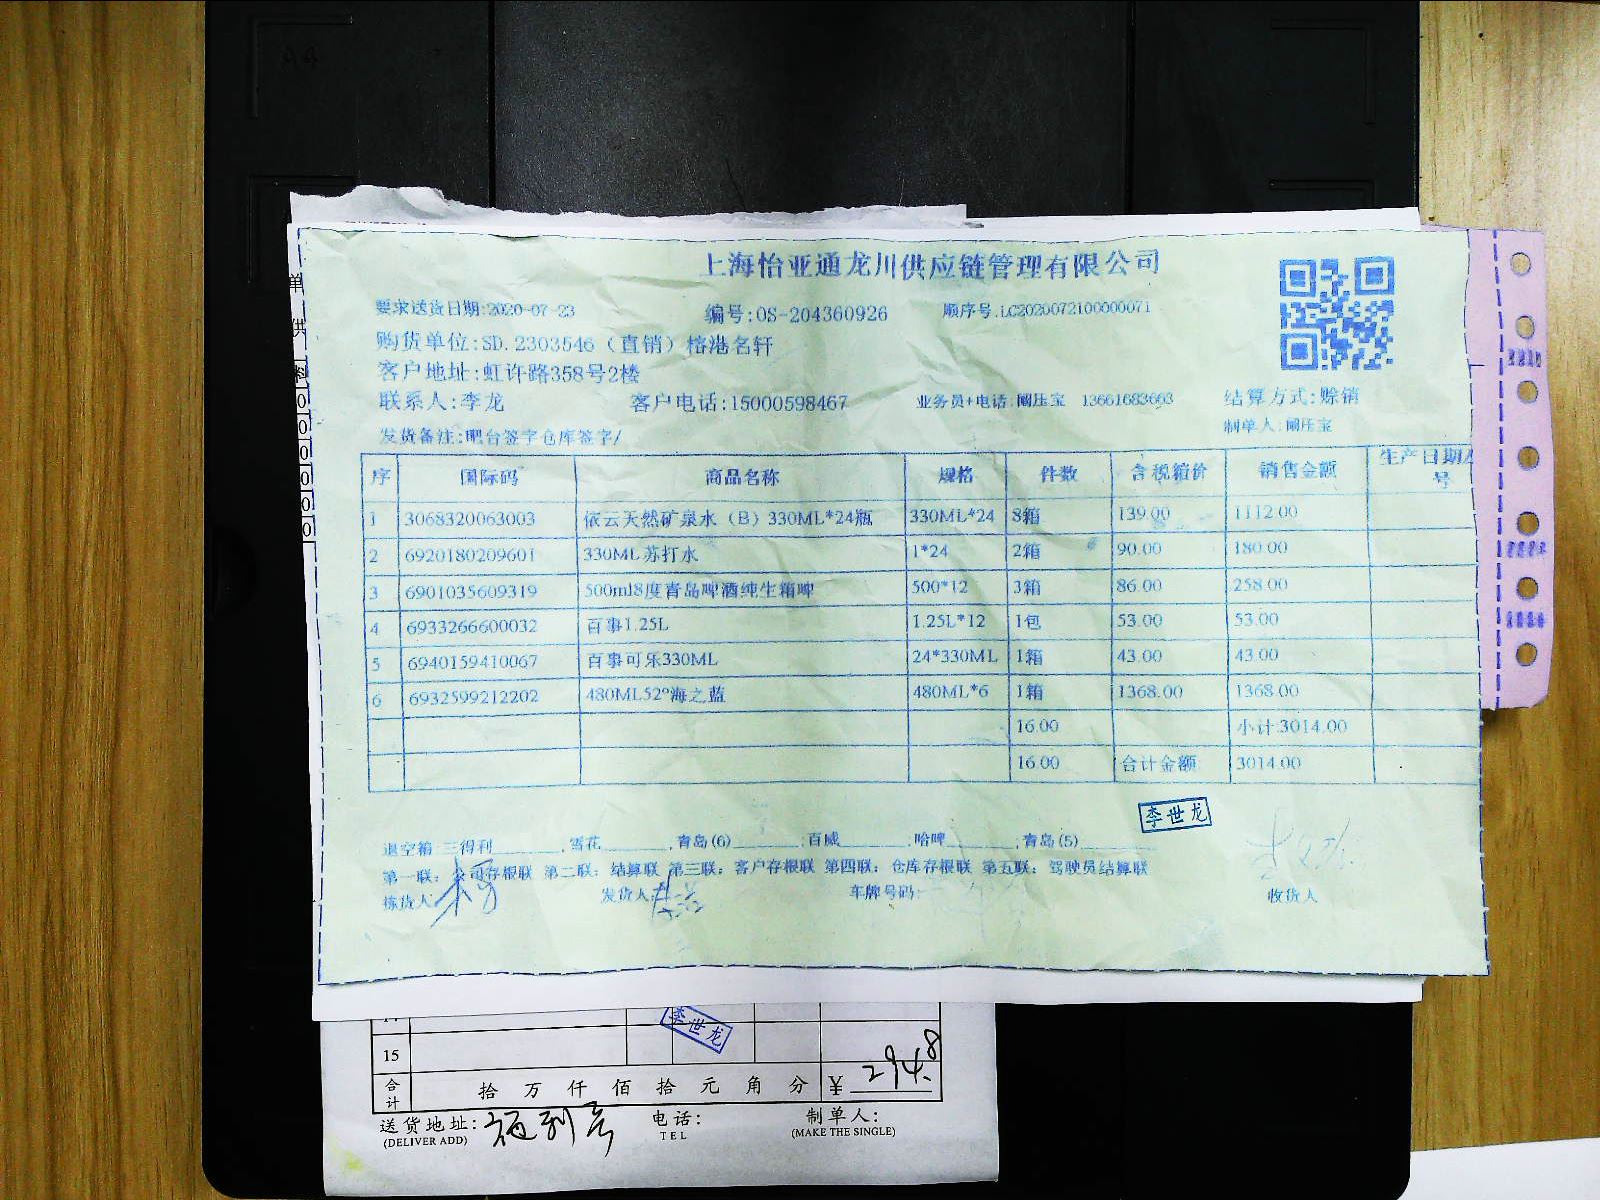 上海怡亚通龙川供应链管理有限公司
要求送货日期:2020-07-23 编号:OS-204360926 顺序号:LC2020072100000071
购货单位:SD.2303546（直销）榕港名轩
客户地址:虹许路358号2楼
联系人:李龙 客户电话:15000598467 业务员+电话:阚压宝 13661683663 结算方式:赊销
发货备注:吧台签字仓库签字/ 制单人:阚压宝
序 国际码 商品名称 规格 件数 含税箱价 销售金额 生产日期/
号
1 3068320063003 依云天然矿泉水（B）330ML*24瓶 330ML*24 8箱 139.00 1112.00
2 6920180209601 330ML苏打水 1*24 2箱 90.00 180.00
3 6901035609319 500ml8度青岛啤酒纯生箱啤 500*12 3箱 86.00 258.00
4 6933266600032 百事1.25L 1.25L*12 1包 53.00 53.00
5 6940159410067 百事可乐330ML 24*330ML 1箱 43.00 43.00
6 6932599212202 480ML52°海之蓝 480ML*6 1箱 1368.00 1368.00
16.00 小计:3014.00
16.00 合计金额: 3014.00
李世龙
退空箱:三得利________,雪花________,青岛(6)________,百威________,哈啤________,青岛(5)________
第一联：公司存根联 第二联：结算联 第三联：客户存根联 第四联：仓库存根联 第五联：驾驶员结算联
拣货人: 发货人: 车牌号码: 收货人
单
供
料
0
0
0
0
0
0
14
李世龙
15
合计 拾 万 仟 佰 拾 元 角 分 ¥ 294.8
送货地址: 电话: 制单人:
(DELIVER ADD) TEL (MAKE THE SINGLE)